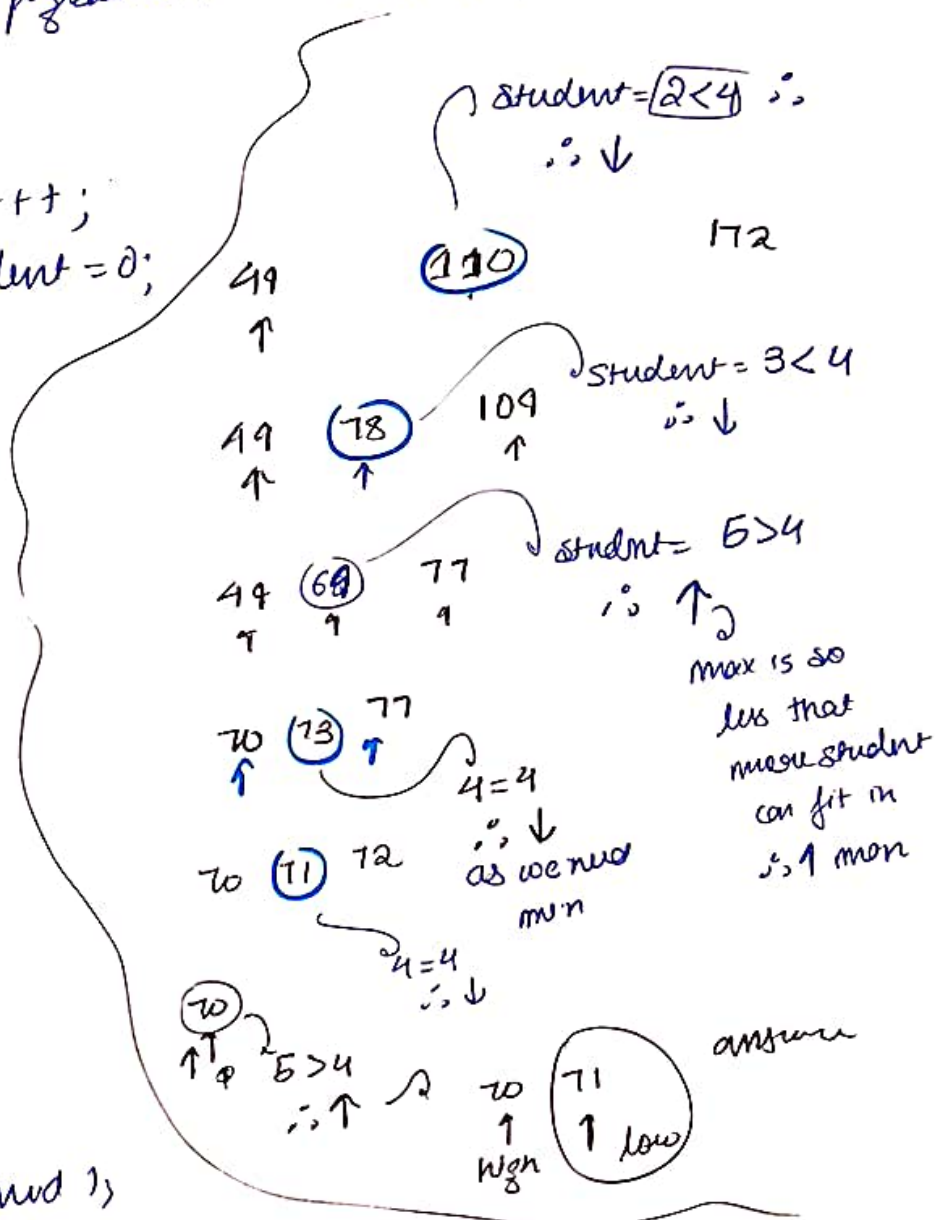 student = 2<4 ∴
∴ ↓
++;
dent = 0;
49 110 172
↑
student = 3<4
∴ ↓
49 78 109
↑ ↑ ↑
student = 5>4
∴ ↑
49 69 77
↑ ↑ ↑
max is so
less that
more student
can fit in
∴ ↑ man
70 73 77
↑ ↑
4=4
∴ ↓
as we need
min
70 71 72
4=4
∴ ↓
70
↑ ↑
5>4
∴ ↑
70 71
↑ ↑ low
high
answer